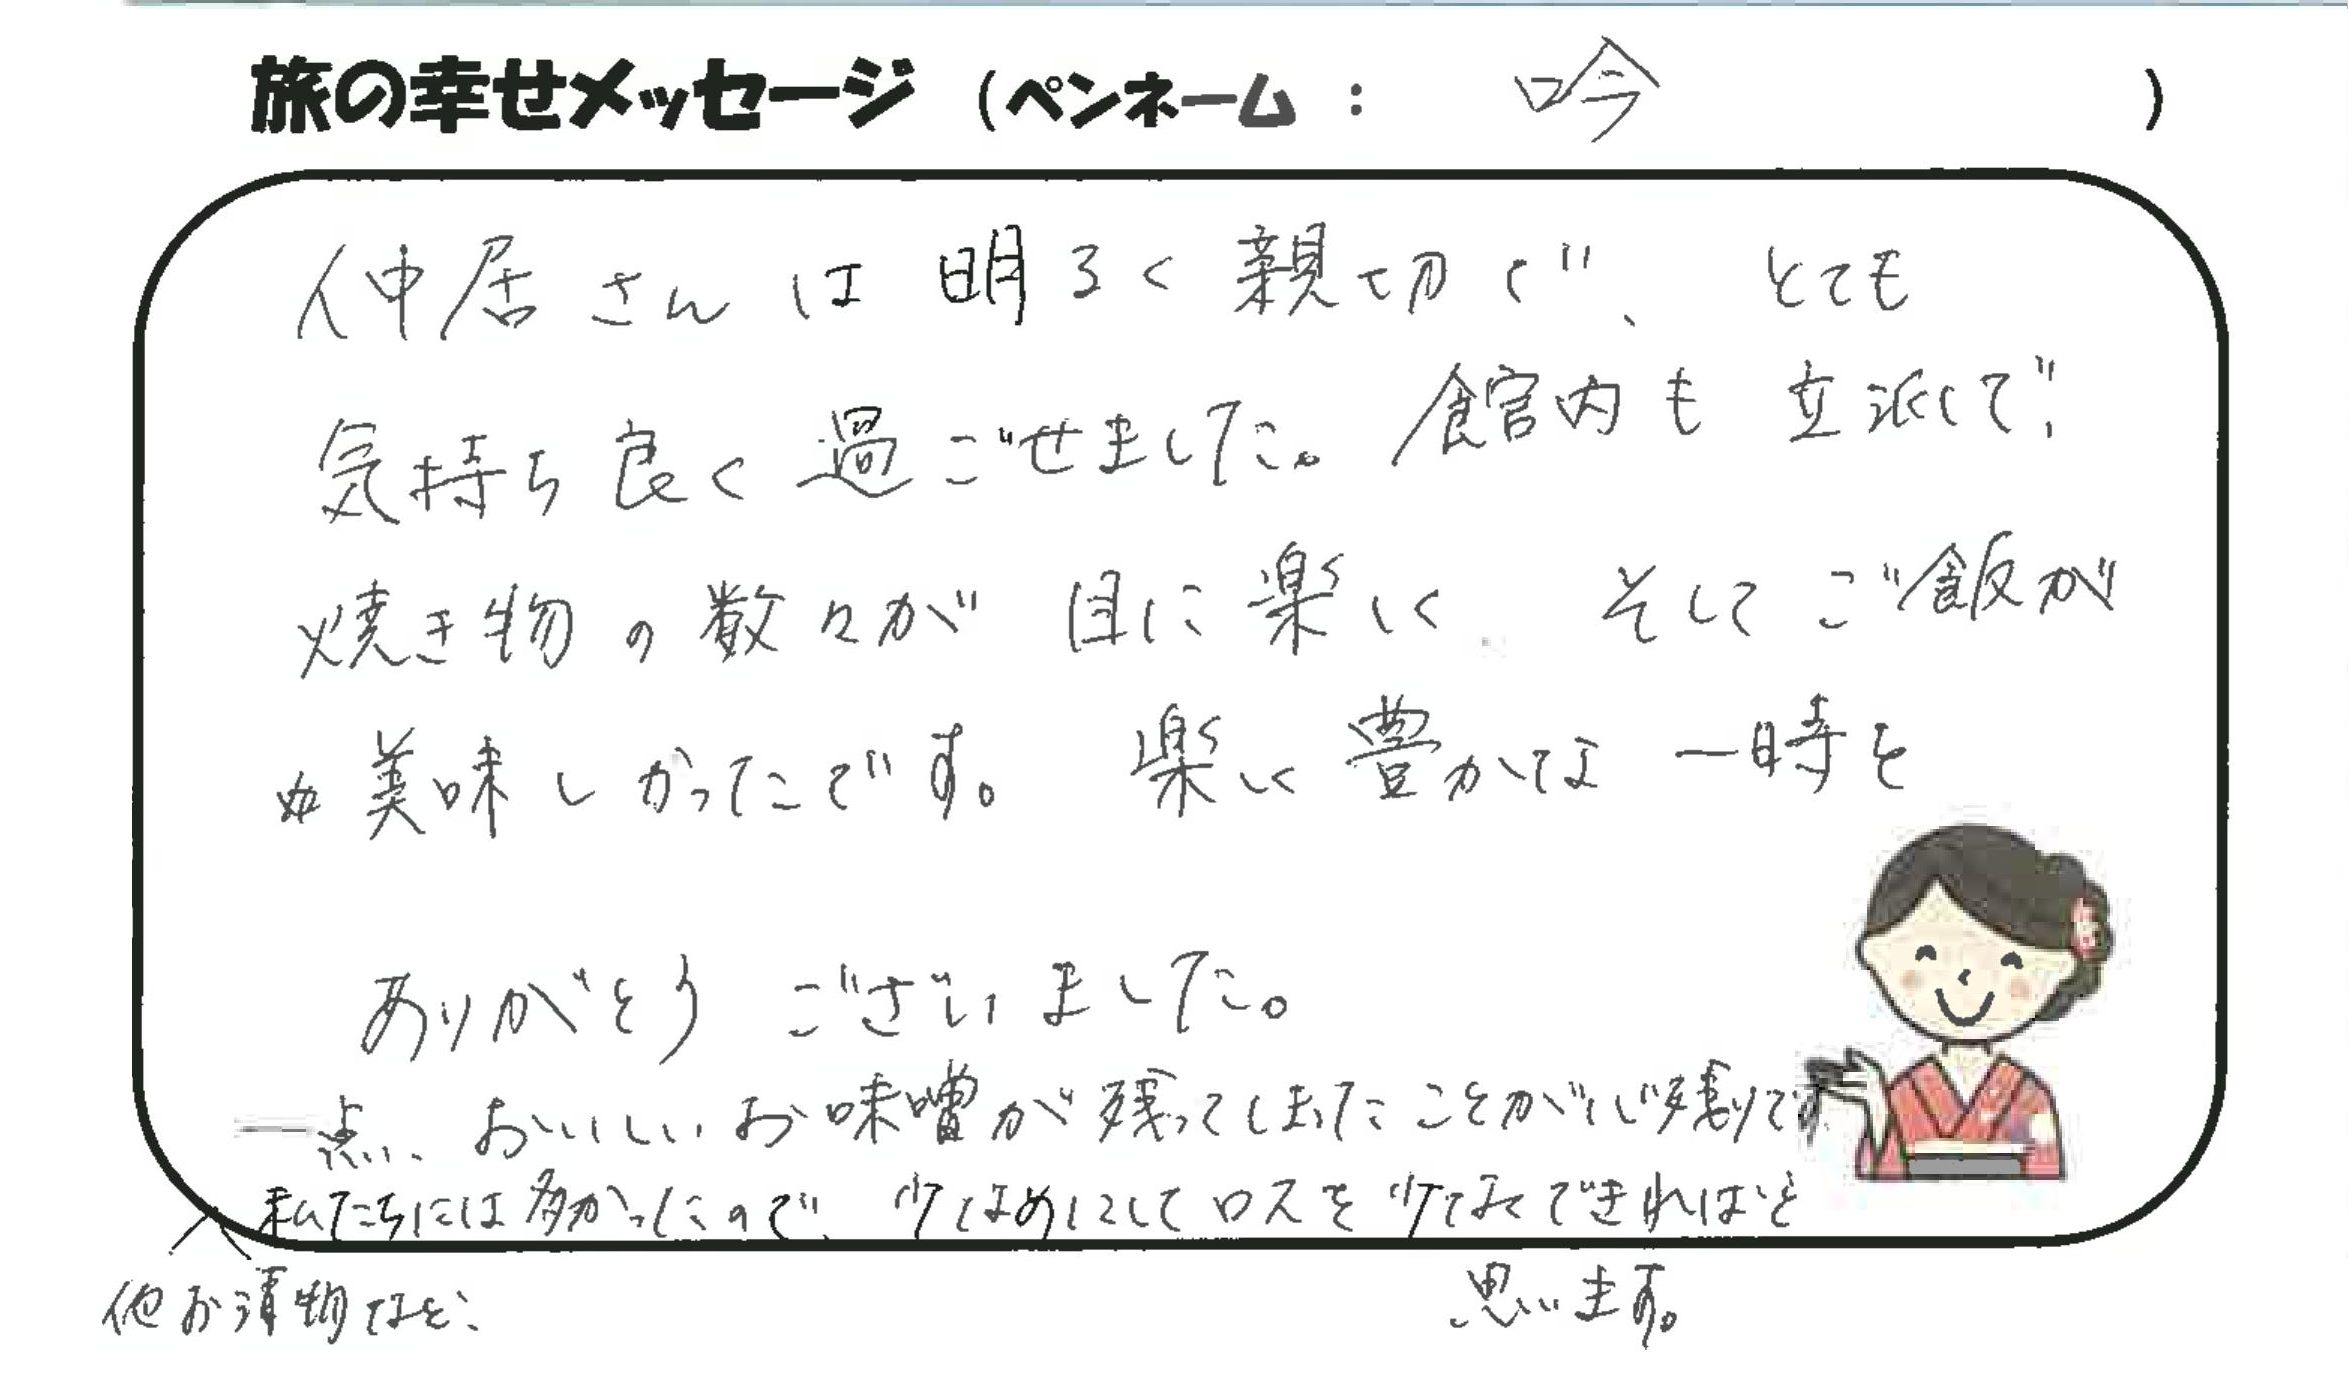 旅の幸せメッセージ（ペンネーム： 吟 ）
仲居さんは明るく親切で、とても
気持ち良く過ごせました。館内も立派で、
焼き物の数々が目に楽しく、そしてご飯が
美味しかったです。楽しく豊かな一時を
ありがとうございました。
一点、おいしいお味噌が残ってしまったことが心残りです。
私たちには多かったので、少なめにしてロスを少なくできればと
思います。
他お漬物など、